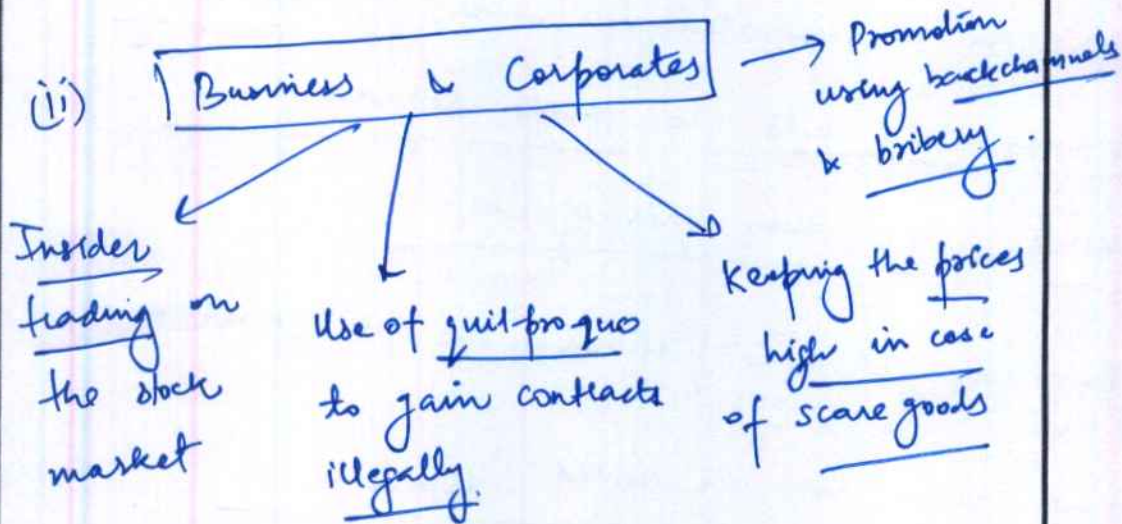 (ii) Business & Corporates
→ Promotion
using backchannels
& bribery.
Insider
trading on
the stock
market
Use of quit pro quo
to gain contracts
illegally.
Keeping the prices
high in case
of scare goods